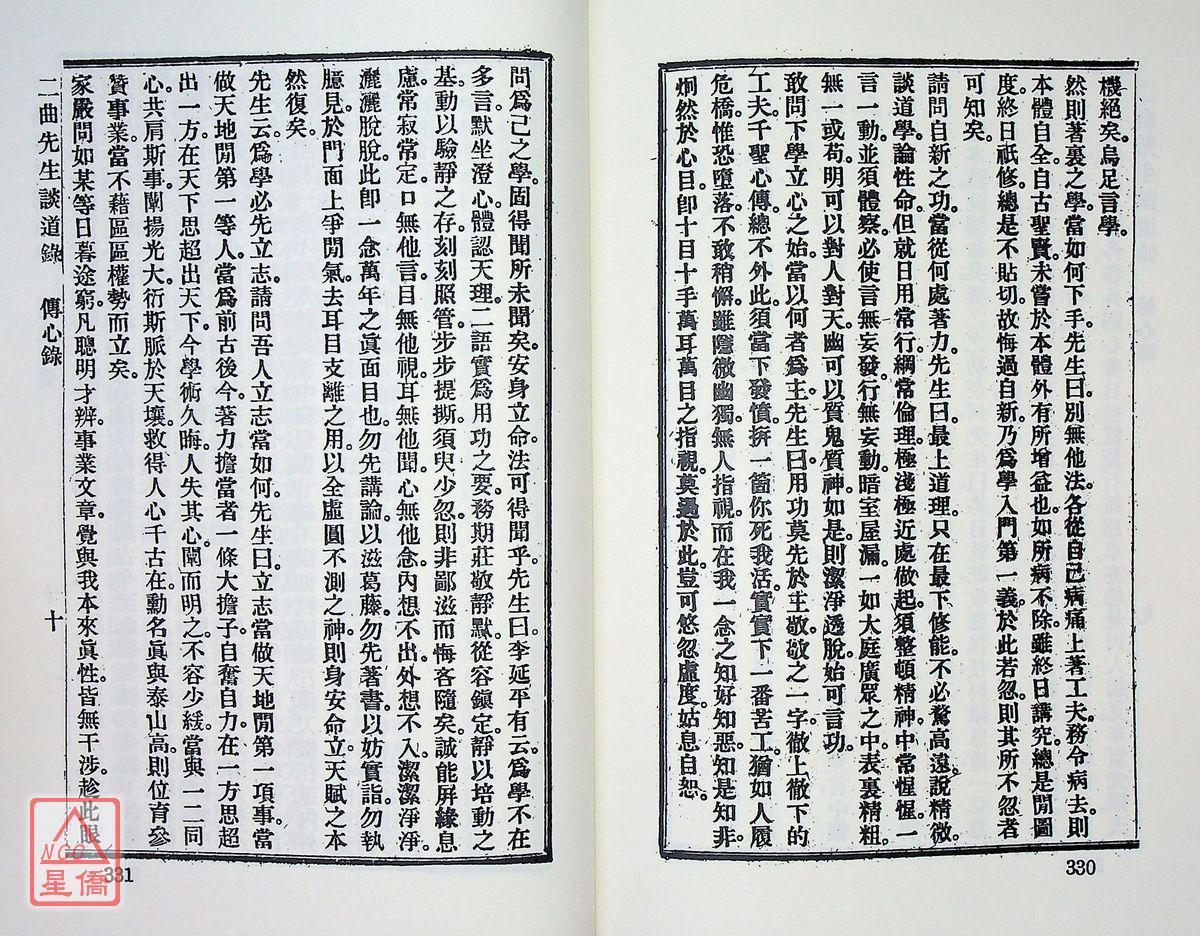 機絕矣。烏足言學。
然則著裏之學。當如何下手。先生曰。別無他法。各從自己病痛上著工夫。務令病去。則
本體自全。自古聖賢。未嘗於本體外有所增益也。如所病不除。雖終日講究。總是閒圖
度。終日祇修。總是不貼切。故悔過自新。乃為學入門第一義。於此若忽。則其所不忽者
可知矣。
請問自新之功。當從何處著力。先生曰。最上道理。只在最下修能。不必騖高遠。說精微。
談道學。論性命。但就日用常行。綱常倫理。極淺極近處做起。須整頓精神。中常惺惺。一
言一動。並須體察。必使言無妄發。行無妄動。暗室屋漏。一如大庭廣眾之中。表裏精粗。
無一或苟。明可以對人對天。幽可以質鬼質神。如是。則潔淨透脫。始可言功。
敢問下學立心之始。當以何者為主。先生曰。用功莫先於主敬。敬之一字。徹上徹下的
工夫。千聖心傳。總不外此。須當下發憤。拚一箇你死我活。實實下一番苦工。猶如人履
危橋。惟恐墮落。不敢稍懈。雖隱微幽獨。無人指視。而在我一念之知好知惡。知是知非。
炯然於心目。即十目十手。萬耳萬目之指視。莫過於此。豈可悠忽虛度。姑息自恕。
330
問為己之學。固得聞所未聞矣。安身立命。法可得聞乎。先生曰。李延平有云。為學不在
多言。默坐澄心。體認天理。二語實為用功之要。務期莊敬靜默。從容鎮定。靜以培動之
基。動以驗靜之存。刻刻照管。步步提撕。須臾少忽。則非鄙滋而悔吝隨矣。誠能屏緣息
慮。常寂常定。口無他言。目無他視。耳無他聞。心無他念。內想不出。外想不入。潔潔淨淨。
灑灑脫脫。此即一念萬年之真面目也。勿先講論。以滋葛藤。勿先著書。以妨實詣。勿執
臆見。於門面上爭閒氣。去耳目支離之用。以全虛圓不測之神。則身安命立。天賦之本
然復矣。
先生云。為學必先立志。請問吾人立志當如何。先生曰。立志當做天地間第一項事。當
做天地間第一等人。當為前古後今。著力擔當者一條大擔子。自奮自力。在一方思超
出一方。在天下思超出天下。今學術久晦。人失其心。闡而明之。不容少緩。當與一二同
心。共肩斯事。闡揚光大。衍斯脈於天壤。救得人心千古在。勳名真與泰山高。則位育參
贊事業。當不藉區區權勢而立矣。
家嚴問如某等日暮途窮。凡聰明才辨。事業文章。覺與我本來真性。皆無干涉。趁此眼
二曲先生談道錄 傳心錄 十
331
NCC
星僑